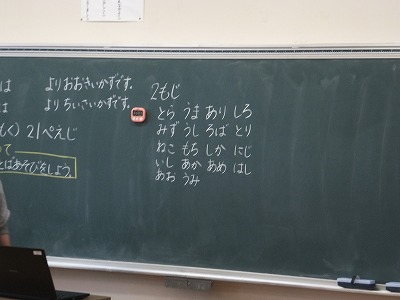 は　よりおおきいかずです。
は　よりちいさいかずです。
く) 21ぺえじ
って
とばあそびをしよう。
2もじ
とら うま あり しろ
みず うし ろば とり
ねこ もち しか にじ
いし あか あめ はし
あお うみ